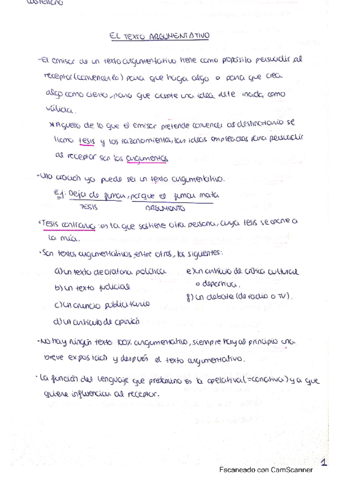 castellano
EL TEXTO ARGUMENTATIVO
-El emisor de un texto argumentativo tiene como propósito persuadir al
receptor (convencerlo) para que haga algo o para que crea
algo como cierto, para que acepte una idea, dicte inicida, como
válida.
*Aquello de lo que el emisor pretende convencer al destinatario se
llama tesis y los razonamientos, las ideas empleadas para persuadir
al receptor son los argumentos.
-Una oración ya puede ser un texto argumentativo.
Ej. Deja de fumar, porque el fumar mata
TESIS ARGUMENTO
·Tesis contraria: es la que sostiene otra persona, cuya tesis se opone a
la mía.
·Son textos argumentativos entre otros, los siguientes:
a) un texto de oratoria política
b) un texto judicial
c) un anuncio publicitario
d) un artículo de opinión
e) un artículo de crítica cultural
o deportiva.
f) un debate (de radio o TV).
·No hay ningún texto 100% argumentativo, siempre hay al principio una
breve exposición y después el texto argumentativo.
·La función del lenguaje que predomina es la apelativa (=conativa) ya que
quiere influenciar al receptor.
1
Escaneado con CamScanner